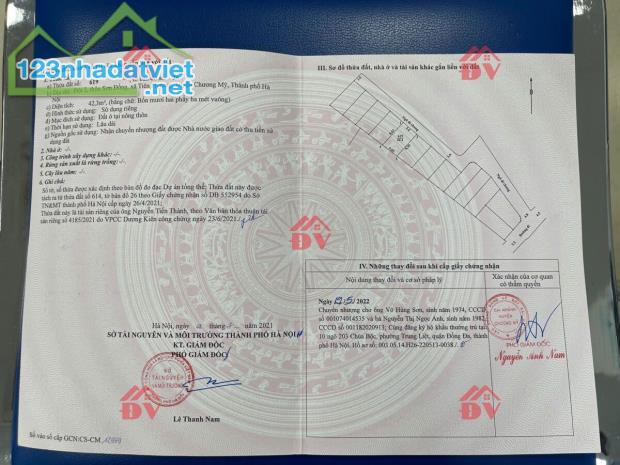 123nhadatviet
.net
a) Thửa đất số: 619
Chương Mỹ, Thành phố Hà
Nội
c) Diện tích: 42,3m², (bằng chữ: Bốn mươi hai phẩy ba mét vuông)
d) Hình thức sử dụng: Sử dụng riêng
đ) Mục đích sử dụng: Đất ở tại nông thôn
e) Thời hạn sử dụng: Lâu dài
g) Nguồn gốc sử dụng: Nhận chuyển nhượng đất được Nhà nước giao đất có thu tiền sử
dụng đất
2. Nhà ở: -/-
3. Công trình xây dựng khác: -/-
4. Rừng sản xuất là rừng trồng: -/-
5. Cây lâu năm: -/-
6. Ghi chú:
Số tờ, số thửa được xác định theo bản đồ đo đạc Dự án tổng thể; Thửa đất này được
tách ra từ thửa đất số 614, tờ bản đồ 26 theo Giấy chứng nhận số DB 552954 do Sở
TN&MT thành phố Hà Nội cấp ngày 26/4/2021;
Thửa đất này là tài sản riêng của ông Nguyễn Tiến Thành, theo Văn bản thỏa thuận tài
sản riêng số 4185/2021 do VPCC Dương Kiên công chứng ngày 23/6/2021./.
Hà Nội, 2021
SỞ TÀI NGUYÊN VÀ MÔI TRƯỜNG THÀNH PHỐ HÀ NỘI
KT. GIÁM ĐỐC
PHÓ GIÁM ĐỐC
SỞ
TÀI NGUYÊN
VÀ MÔI TRƯỜNG
Lê Thanh Nam
Số vào sổ cấp GCN:CS-CM
III. Sơ đồ thửa đất, nhà ở và tài sản khác gắn liền với đất
IV. Những thay đổi sau khi cấp giấy chứng nhận
Nội dung thay đổi và cơ sở pháp lý
Xác nhận của cơ quan
có thẩm quyền
Ngày 19/5/2022
Chuyển nhượng cho ông Vũ Hùng Sơn, sinh năm 1974, CCCD
số 001074014535 và bà Nguyễn Thị Ngọc Anh, sinh năm 1982,
CCCD số 001182020913; Cùng đăng ký hộ khẩu thường trú tại:
10 ngõ 203 Chùa Bộc, phường Trung Liệt, quận Đống Đa, thành
phố Hà Nội. Hồ sơ số: 003.05.14.H26-220513-0038./.
CHI NHÁNH
HUYỆN
CHƯƠNG MỸ
PHÓ GIÁM ĐỐC
Nguyễn Anh Nam
ĐV
ĐV
ĐV
ĐV